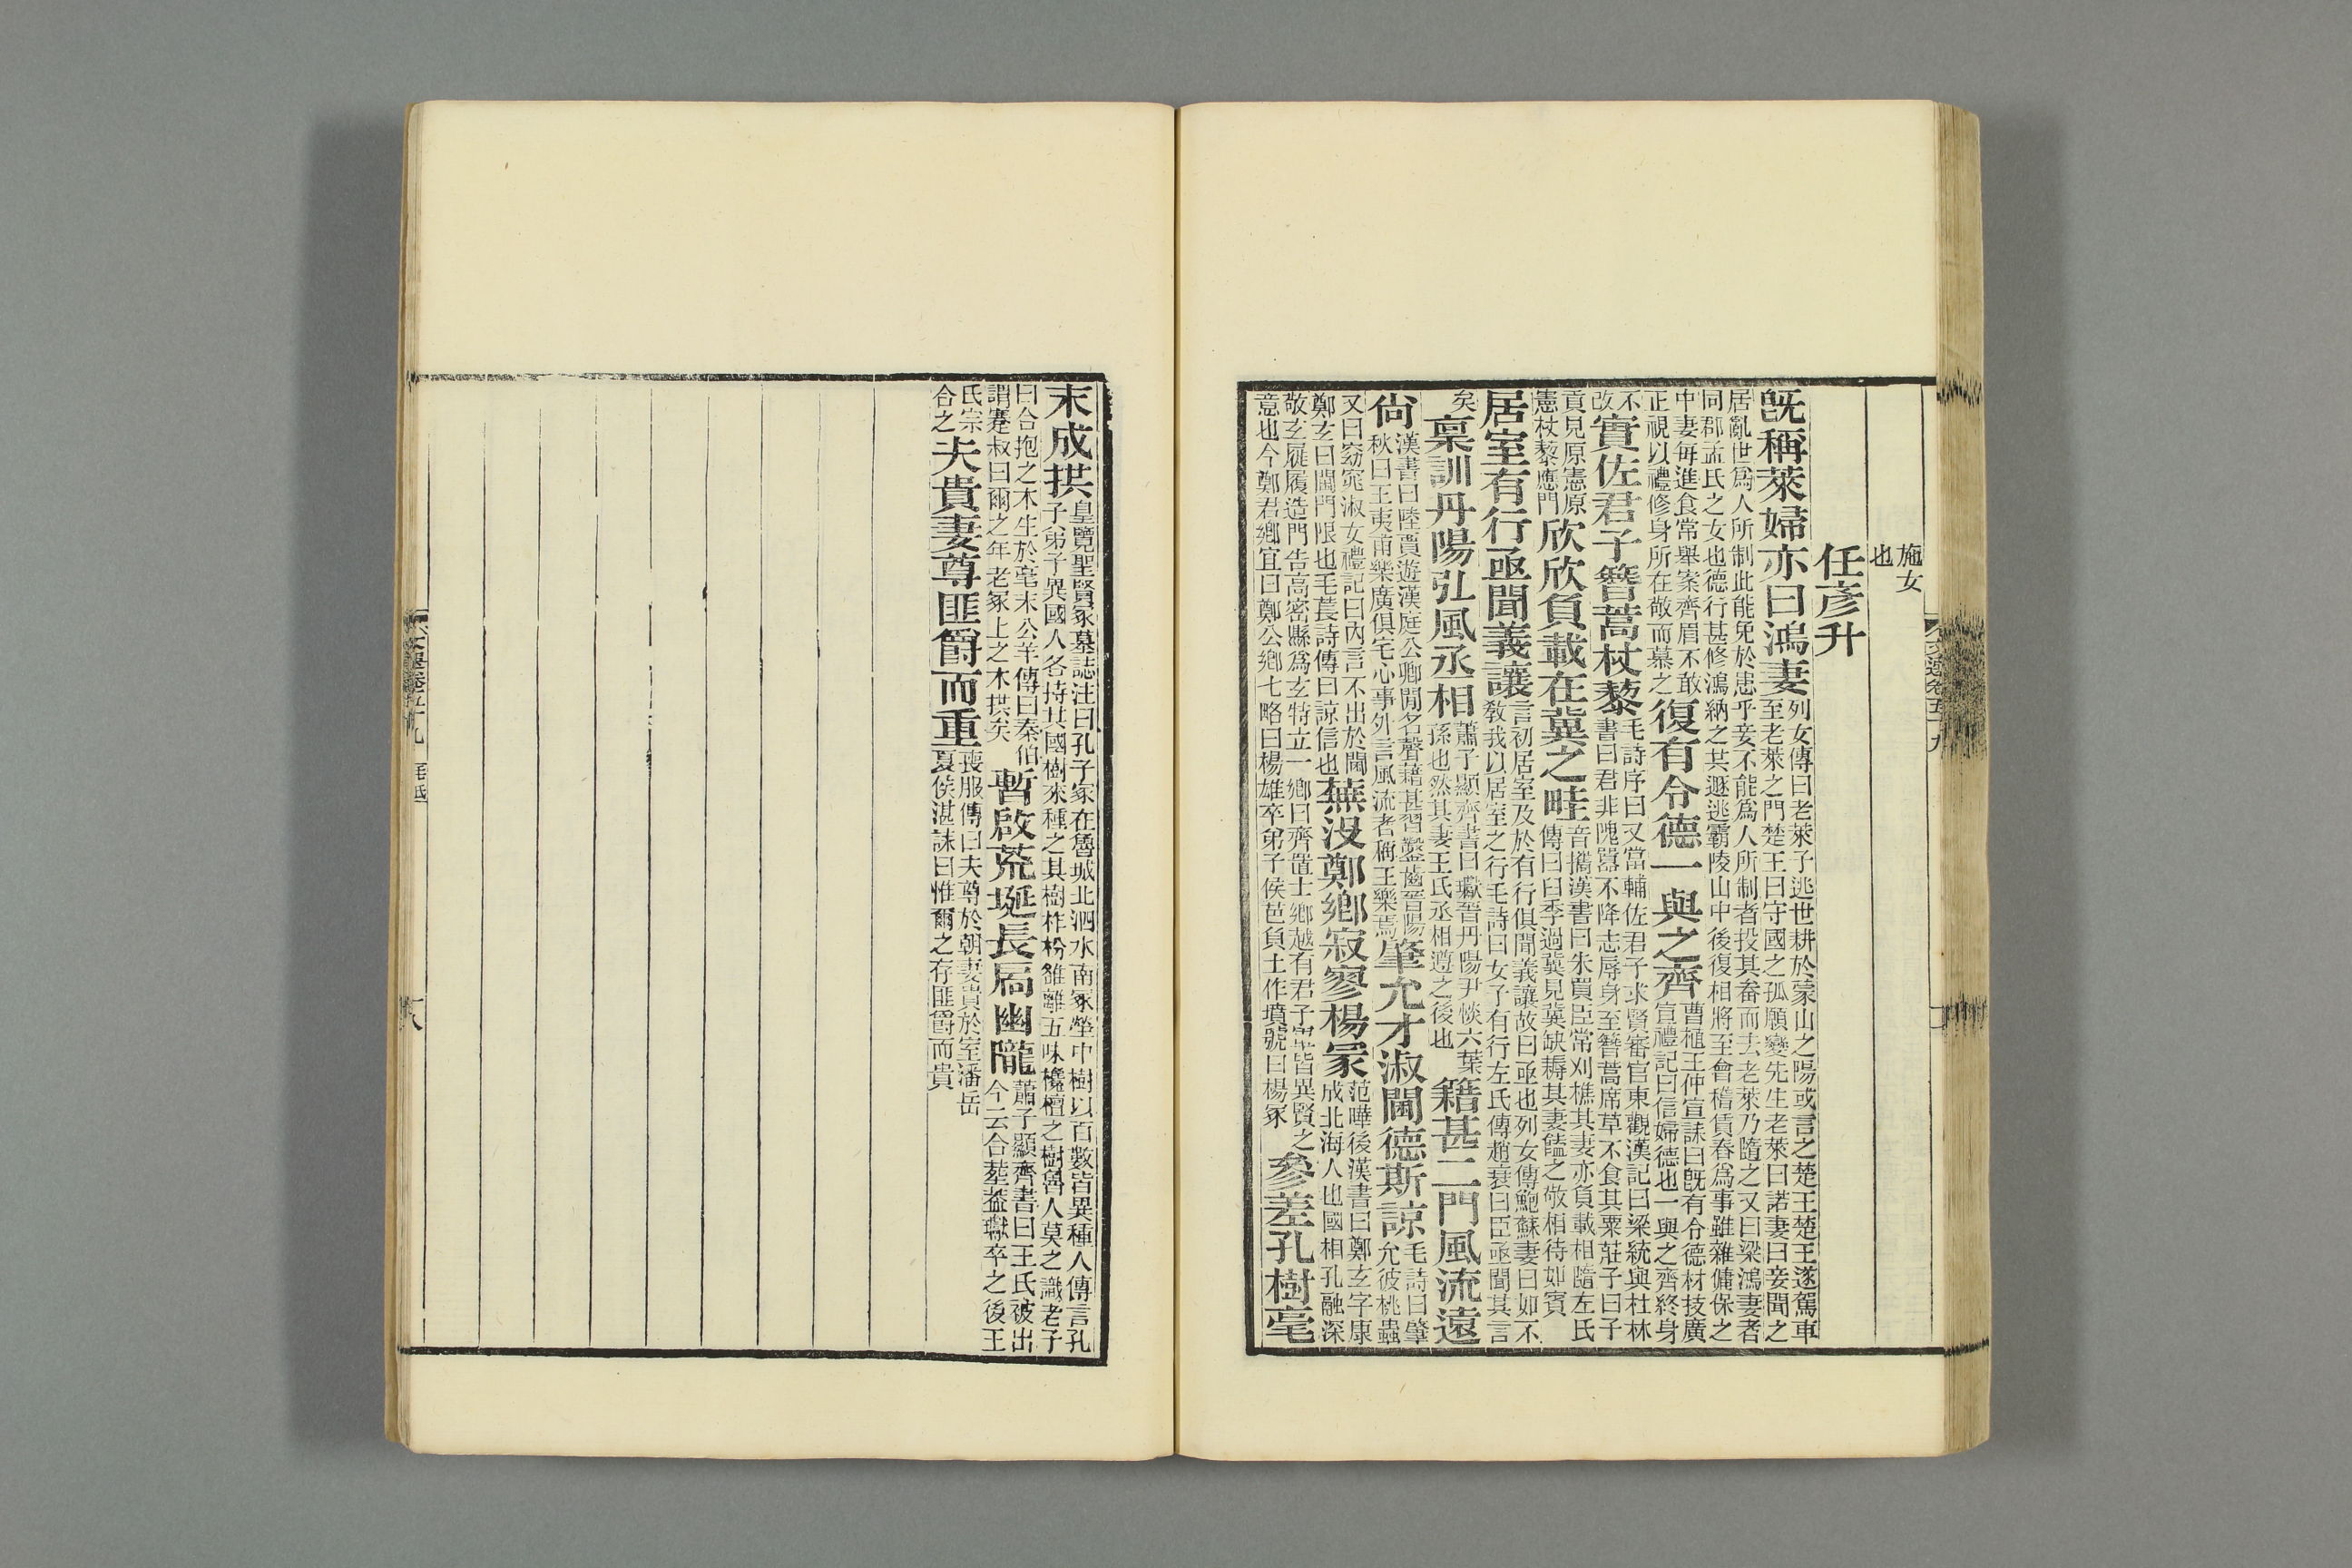 施女
也
任彥升
既稱萊婦亦曰鴻妻列女傳曰老萊子逃世耕於蒙山之陽或言之楚王楚王遂駕車
至老萊之門楚王曰守國之孤願變先生老萊曰諾妻曰妾聞之
居亂世爲人所制此能免於患乎妾不能爲人所制者投其畚而去老萊乃隨之又曰梁鴻妻者
同郡孟氏之女也德行甚修鴻納之其遯逃霸陵山中後復相將至會稽賃舂爲事雖雜傭保之
中妻每進食常舉案齊眉不敢
正視以禮修身所在敬而慕之復有令德一與之齊曹植王仲宣誄曰既有令德材技廣
宣禮記曰信婦德也一與之齊終身
不
改實佐君子簪蒿杖藜毛詩序曰又當輔佐君子求賢審官東觀漢記曰梁統與杜林
書曰君非隗囂不降志辱身至簪蒿席草不食其粟莊子曰子
貢見原憲原
憲杖藜應門欣欣負載在冀之畦音攜漢書曰朱買臣常刈樵其妻亦負載相隨左氏
傳曰臼季過冀見冀缺耨其妻饁之敬相待如賓
居室有行亟聞義讓言初居室及於有行俱聞義讓故曰亟也列女傳鮑蘇妻曰如不
敎我以居室之行毛詩曰女子有行左氏傳趙衰曰臣亟聞其言
矣稟訓丹陽弘風丞相蕭子顯齊書曰瓛晉丹陽尹惔六葉
孫也然其妻王氏丞相遵之後也籍甚二門風流遠
尙漢書曰陸賈遊漢庭公卿閒名聲藉甚習鑿齒晉陽
秋曰王夷甫樂廣俱宅心事外言風流者稱王樂焉肇允才淑閫德斯諒毛詩曰肇
允彼桃蟲
又曰窈窕淑女禮記曰內言不出於閫
鄭玄曰閫門限也毛萇詩傳曰諒信也蕪沒鄭鄉寂寥楊冢范曄後漢書曰鄭玄字康
成北海人也國相孔融深
敬玄屣履造門告高密縣爲玄特立一鄉曰齊置士鄉越有君子軍皆異賢之
意也今鄭君鄉宜曰鄭公鄉七略曰楊雄卒弟子侯芭負土作墳號曰楊冢參差孔樹毫
末成拱皇覽聖賢冢墓誌注曰孔子冢在魯城北泗水南冢塋中樹以百數皆異種人傳言孔
子弟子異國人各持其國樹來種之其樹柞枌雒離五味欃檀之樹魯人莫之識老子
曰合抱之木生於毫末公羊傳曰秦伯
謂蹇叔曰爾之年老冢上之木拱矣暫啟荒埏長扃幽隴蕭子顯齊書曰王氏被出
今云合葬蓋瓛卒之後王
氏宗
合之夫貴妻尊匪爵而重喪服傳曰夫尊於朝妻貴於室潘岳
夏侯湛誄曰惟爾之存匪爵而貴
文選卷五十九
八